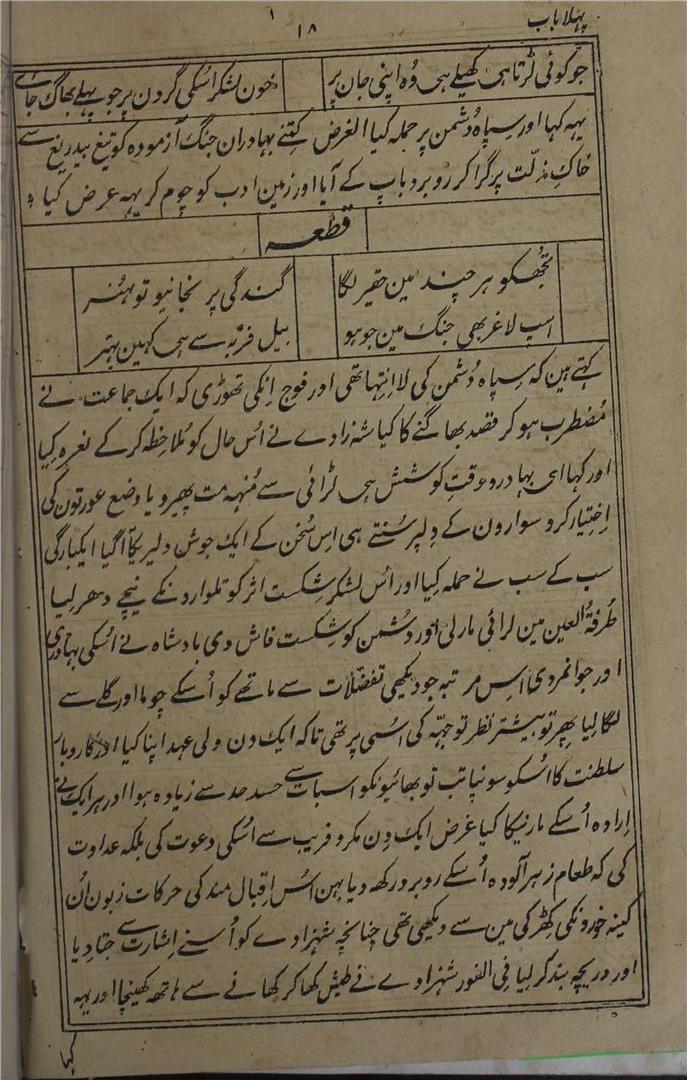 پہلا باب
۱۸
جو کوئی لڑتا ہی کھیلے ہی وُہ اپنی جان پر خون لشکر اُسکی گردن پر جو پہلے بھاگ جائے
یہہ کہا اور سِپاہ دُشمن پر حملہ کیا الغرض کِتنے بہادران جنگ آزمودہ کو تیغِ بیدریغ سے
خاکِ مذلّت پر گرا کر روبرو باپ کے آیا اور زمین ادب کو چوم کر یہہ عرض کیا
قطعہ
تجھکو ہر چند مین حقیر لگا گندگی پر نجانیو تو ہنر
اسپ لاغر بھی جنگ مین جو ہو بیل فربہ سے ہی کہین بہتر
کہتے ہین کہ سِپاہ دُشمن کی لا اِنتہا تھی اور فوج اِنکی تھوڑی کہ ایک جماعت نے
مُضطرب ہو کر قصد بھاگنے کا کیا شہزادے نے اُس حال کو مُلاحظہ کر کے نعرہ کیا
اور کہا ای بہادرو وقتِ کوشش ہی لڑائی سے مُنہہ مت پھیرو یا وضع عورتون کی
اِختیار کرو سوارون کے دِلپر سُنتے ہی اِس سُخن کے ایک جوش دلیریکا آگیا ایکبارگی
سب کے سب نے حملہ کِیا اور اُس لشکرِ شِکست اثر کو تلوارونکے نیچے دھر لیا
طُرفۃُ العین مین لڑائی مار لی اور دُشمن کو شِکست فاش دی بادشاہ نے اُسکی بہادری
اور جوانمردی اِس مرتبہ جو دیکھی تفضّلات سے ماتھے کو اُسکے چوما اور گلے سے
لگا لیا پھر تو بیشتر نظر توجہّہ کی اُسی پر تھی تا کہ ایک دن ولی عہد اپنا کیا اور کاروبار
سلطنت کا اُسکو سونپا تب تو بھائیونکو اسبات سے حسد حد سے زیادہ ہوا اور ہر ایک نے
اِرادہ اُسکے مارنیکا کیا غرض ایک دِن مکر و فریب سے اُسکی دعوت کی بلکہ عداوت
کی کہ طعام زہر آلودہ اُسکے روبرو رکھہ دیا بہن اُس اِقبال مند کی حرکات زبون اُن
کینہ ورونکی کھڑکی مین سے دیکھی تھی چنانچہ شہزادے کو اُسنے اِشارت سے جتا دیا
اور دریچہ بند کر لیا فی الفور شہزادے نے طیش کھا کر کھانے سے ہاتھہ کھینچا اور یہہ
کہا